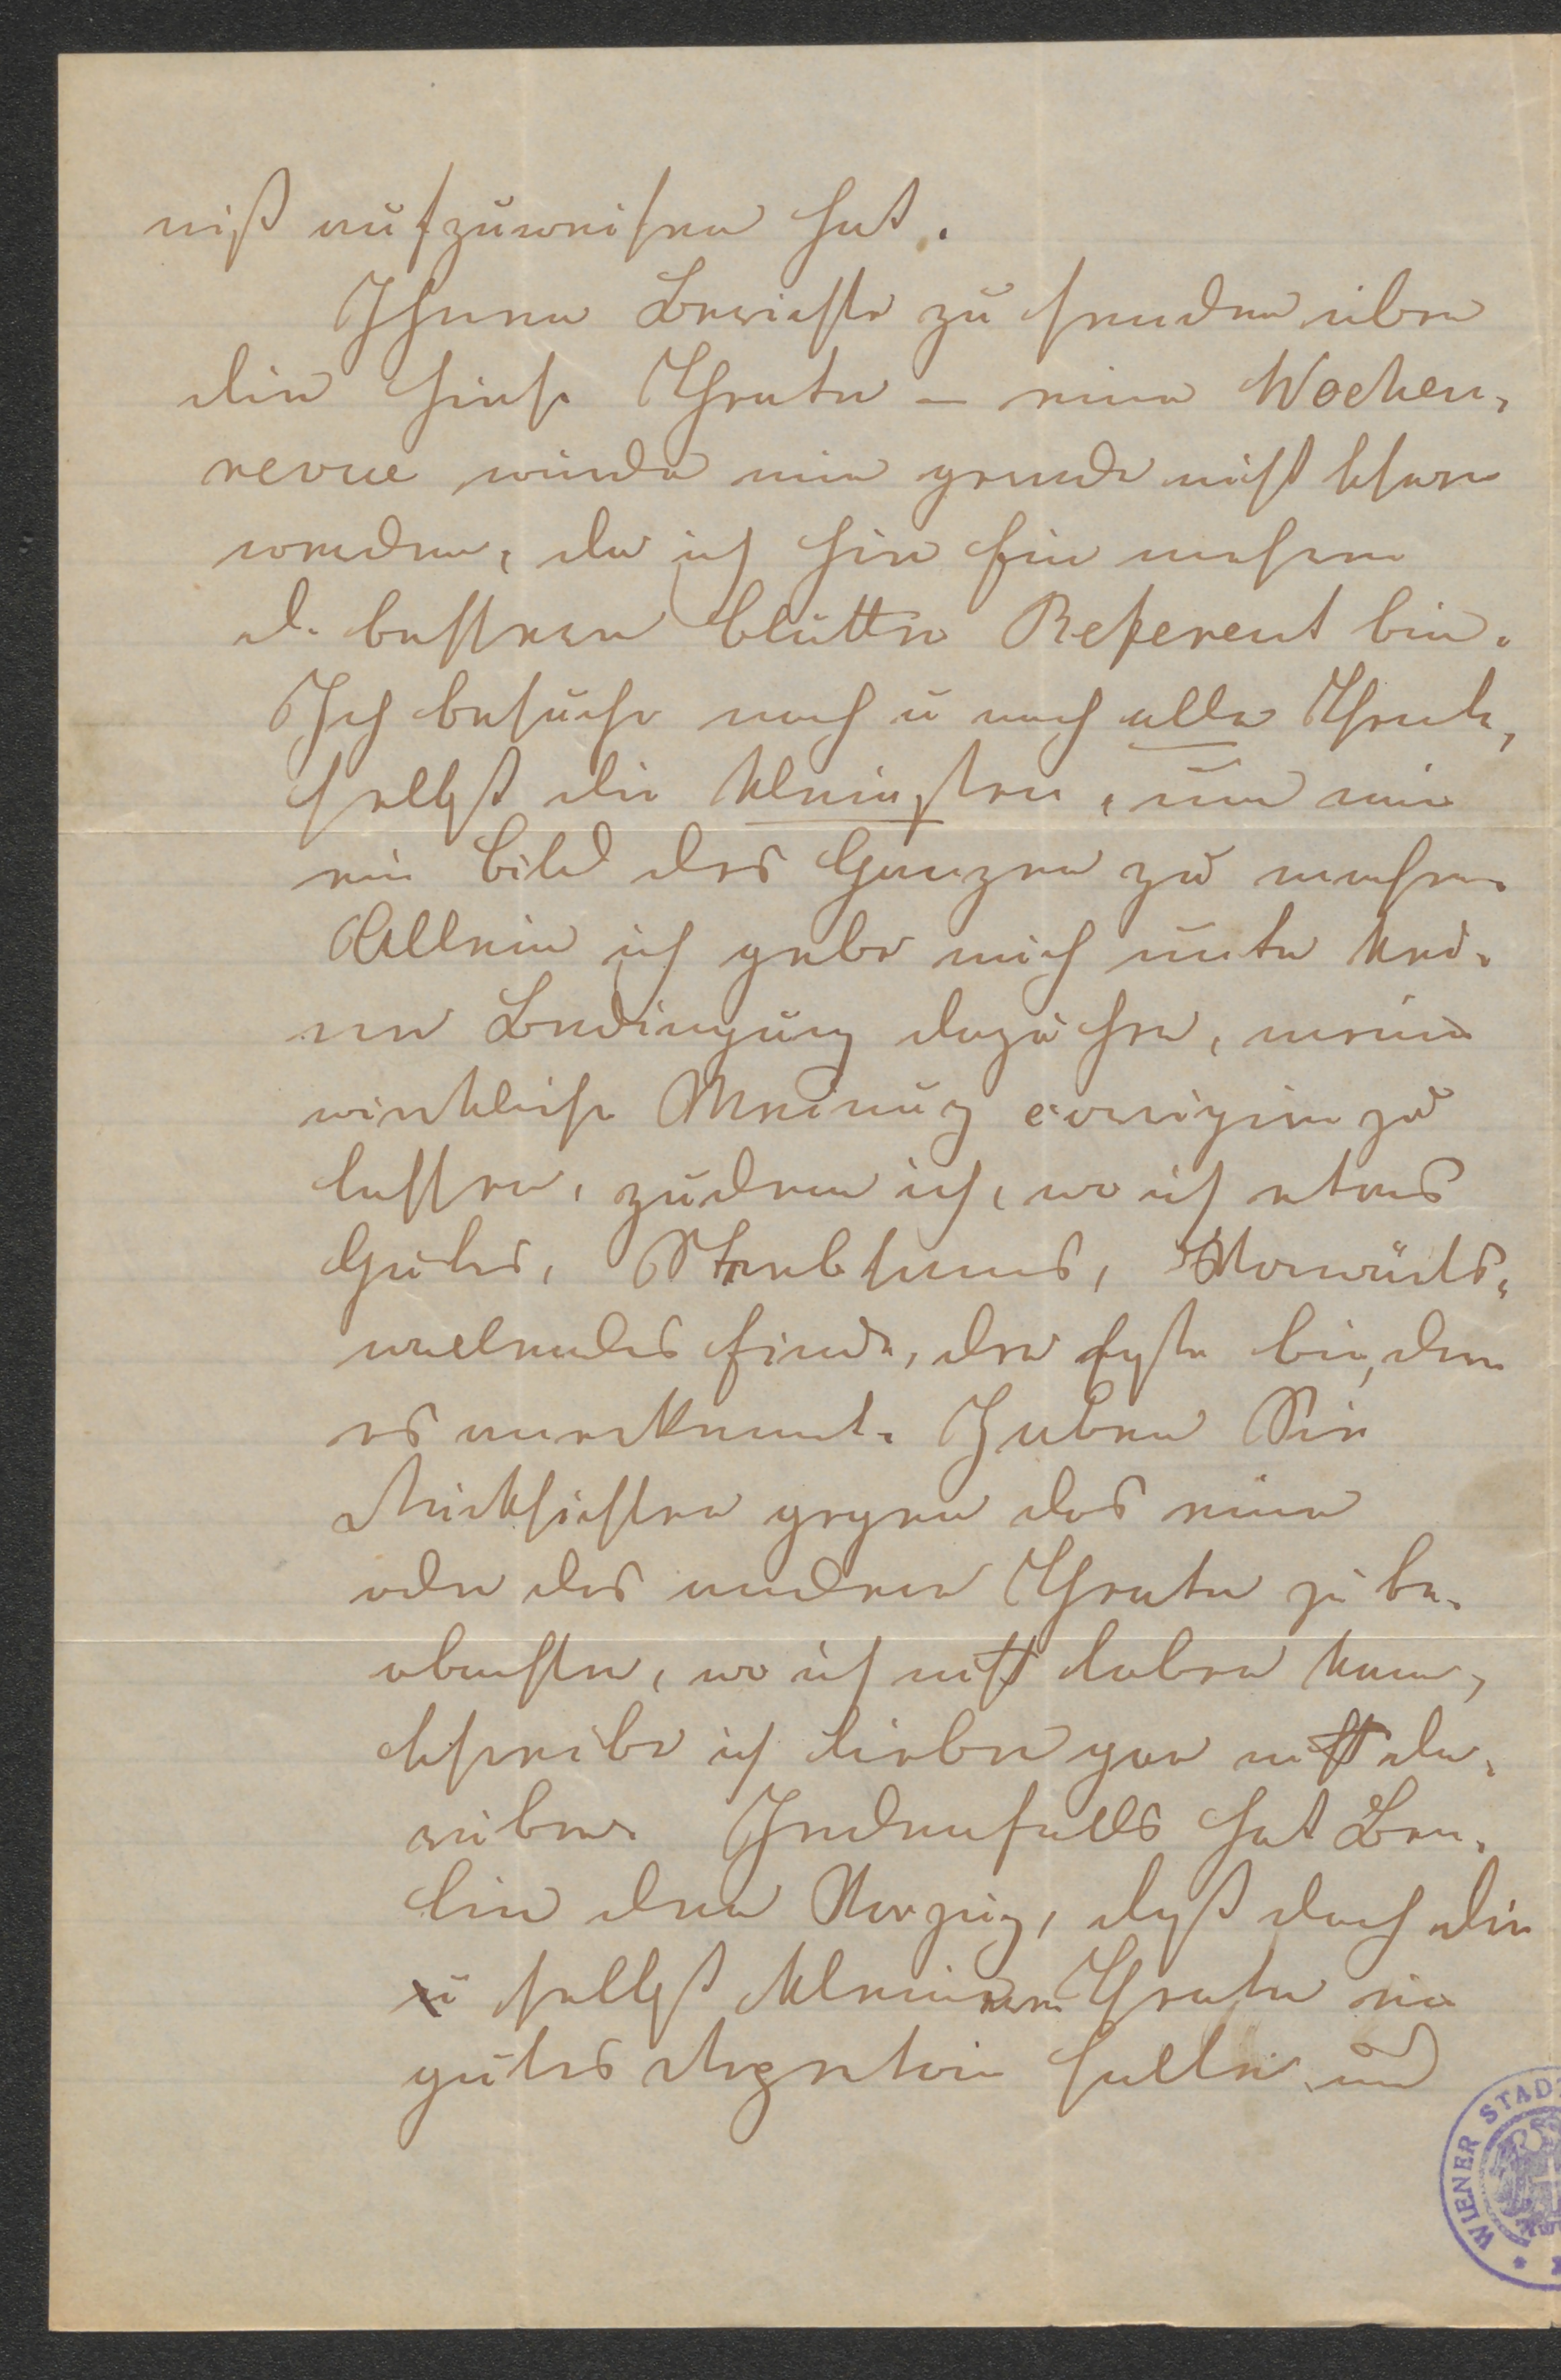 niß aufzuweisen hat.
Ihnen Berichte zu senden über
die hies. Theater – eine Wochen-
revue würde mir gerade nicht schwer
werden, da ich hier für mehrere
d. besseren Blätter Referent bin.
Ich besuche nach u nach alle Theater,
selbst die kleinsten, um mir
ein Bild des Ganzen zu machen.
Allein ich gebe mich unter kei-
ner Bedingung dazu her, meine
wirkliche Meinung corrigiren zu
lassen, zudem ich, wo ich etwas
Gutes, Strebsames, Vorwärts-
wollendes finde, der erste bin, der
es anerkennt. Haben Sie
Rücksichten gegen das eine
oder das andere Theater zu be-
obachten, wo ich nicht loben kann,
schreibe ich lieber gar nicht da-
rüber. Jedenfalls hat Ber-
lin den Vorzug, daß doch die
selbst kleineren Theater ein
gutes Repertoir halten und
WIENER STAD